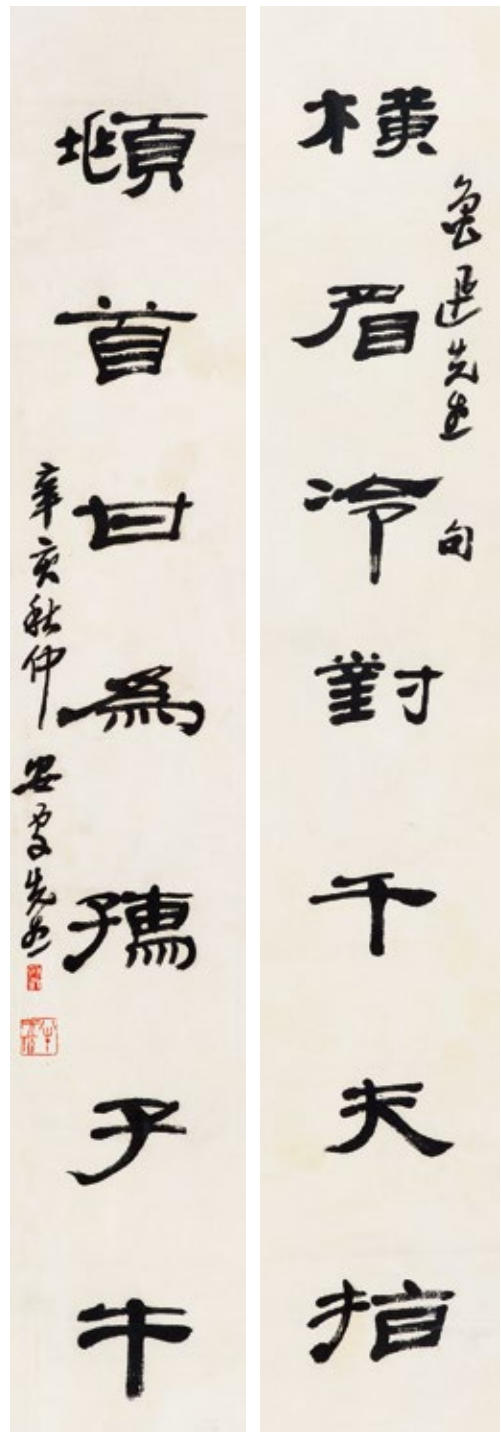 橫眉冷對千夫指
魯迅先生句
頫首甘為孺子牛
辛亥秋仲
安處先生